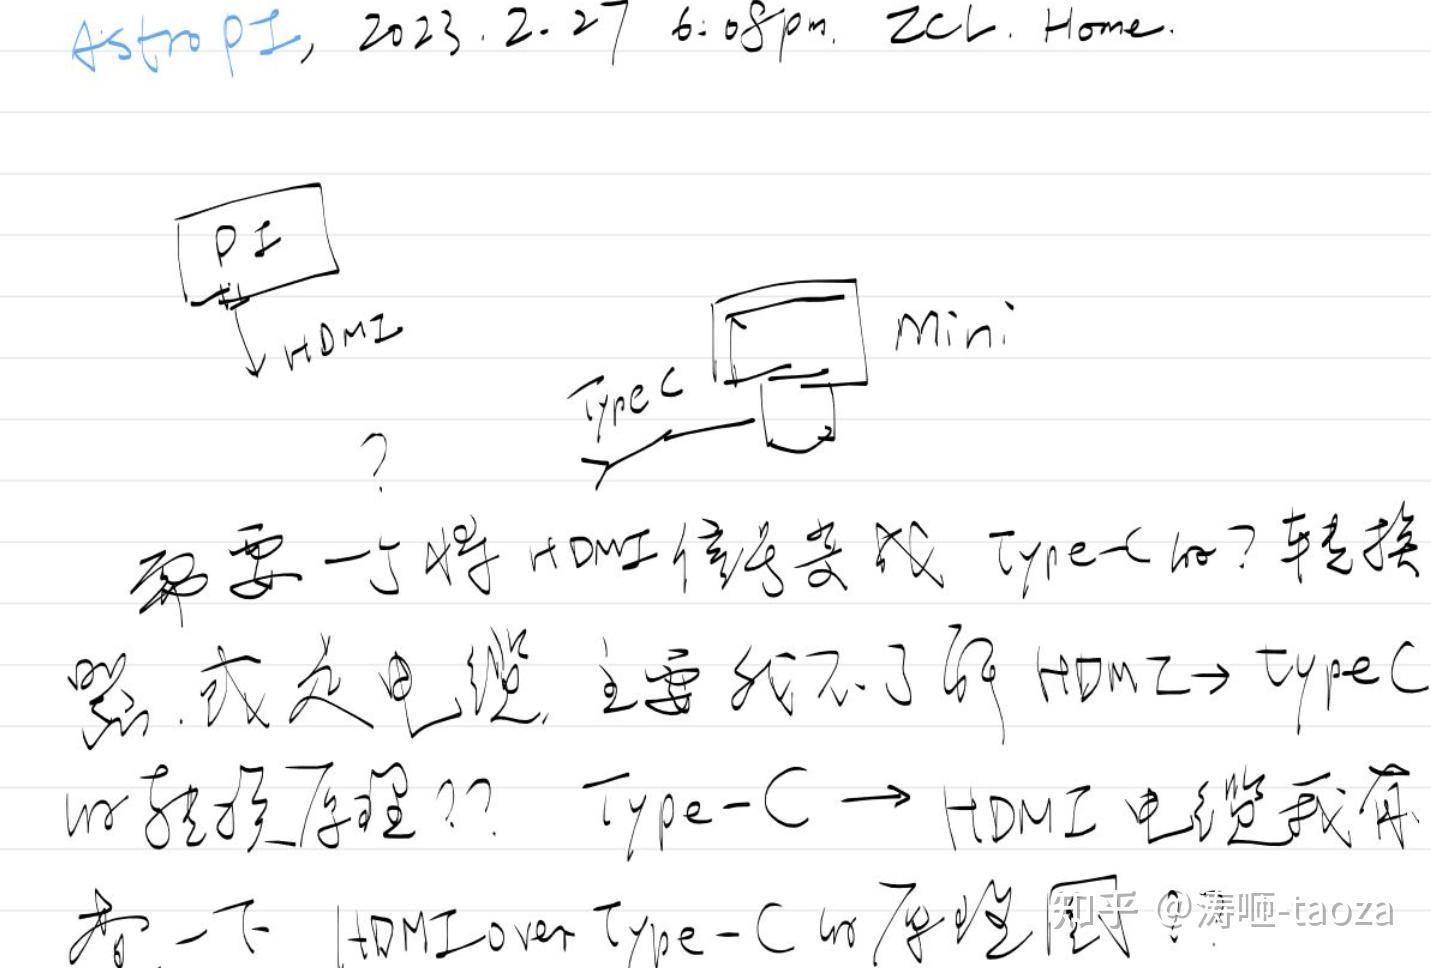 AstroPI, 2023.2.27 6:08pm. ZCL. Home.
PI
HDMI
Mini
TypeC
?
需要一个将HDMI信号变成 Type-C的?转换
器.或是电缆,主要我不了解HDMI→typeC
的转换原理?? Type-C→HDMI电缆我有
看一下 HDMI over Type-C的原理图??
知乎 @涛咂-taoza